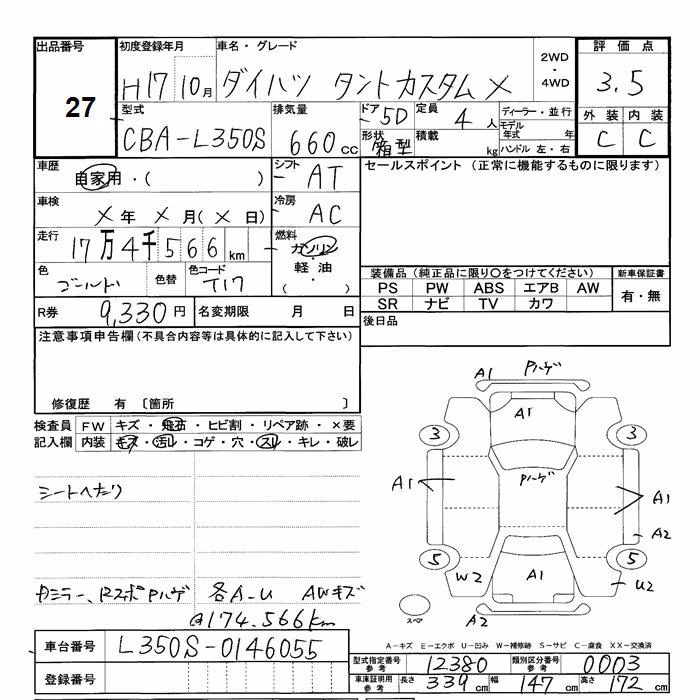 出品番号 初度登録年月 車名・グレード 2WD ・ 4WD 評価点
27 H17 10月 ダイハツ タントカスタム X 3.5
型式 排気量 ドア 5D 定員 4人 ディーラー・並行 外装 内装
CBA-L350S 660cc 形状 箱型 積載 kg モデル年式 年 C C
ハンドル 左・右
車歴 自家用・( ) シフト AT セールスポイント (正常に機能するものに限ります)
車検 X年 X月(X日) 冷房 AC
走行 17万4千566km 燃料 ガソリン・軽油・( )
色 ゴールド 色替 色コード T17 装備品(純正品に限り○をつけてください) 新車保証書
PS PW ABS エアB AW 有・無
R券 9,330円 名変期限 月 日 SR ナビ TV カワ
注意事項申告欄(不具合内容等は具体的に記入して下さい) 後日品
修復歴 有 〔箇所 〕
検査員 FW キズ・飛石・ヒビ割・リペア跡・×要
記入欄 内装 キズ・汚レ・コゲ・穴・スレ・キレ・破レ
シートヘタリ
各A-U AWキズ
@174.566km
A1 Pハゲ
A1
3 3
A1 Pハゲ A1
A2
5 5
W2 A1 U2
スペア A2
A-キズ E-エクボ U-凹み W-補修跡 S-サビ C-腐食 XX-交換済
車台番号 L350S-0146055 型式指定番号 参考 12380 類別区分番号 参考 0003
登録番号 車庫証明用 参考 長さ 339cm 幅 147cm 高さ 172cm